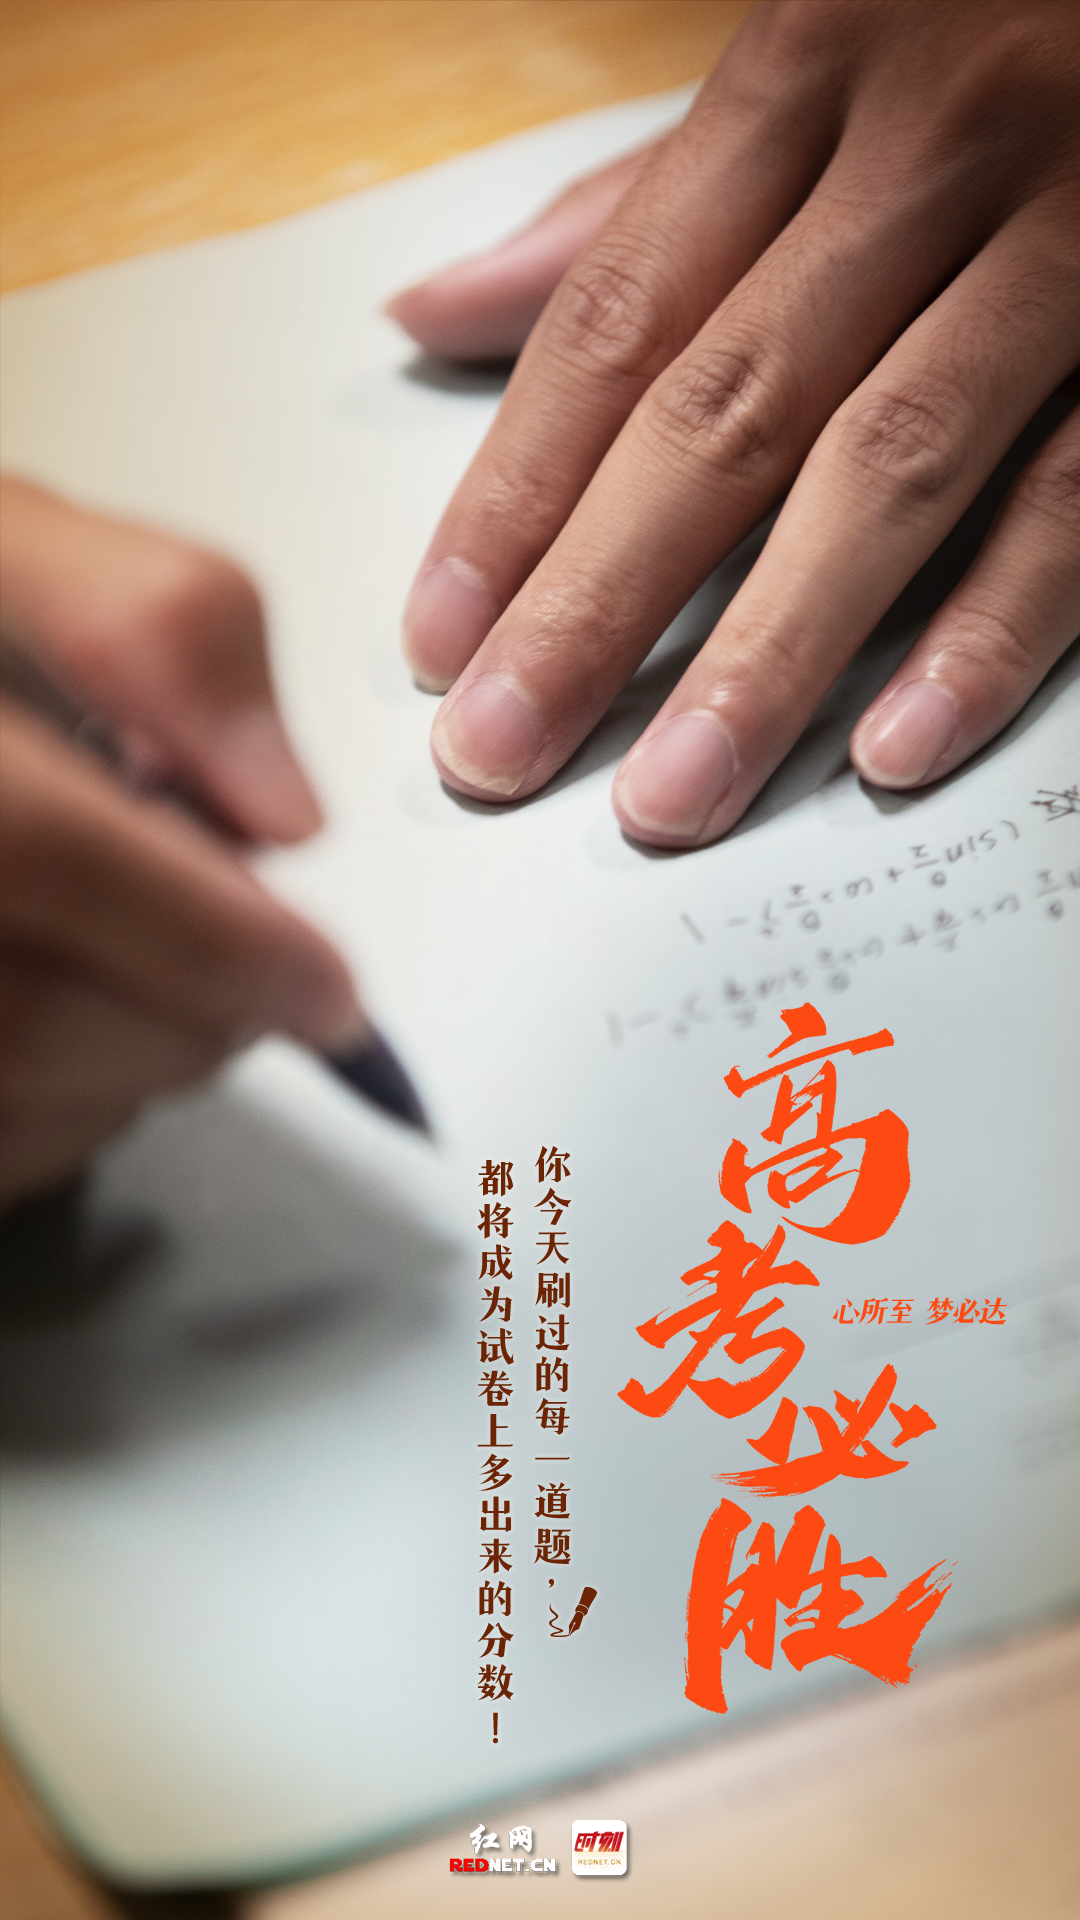 高考必胜
心所至 梦必达
你今天刷过的每一道题，
都将成为试卷上多出来的分数！
红网
REDNET.CN
时刻
REDNET.CN